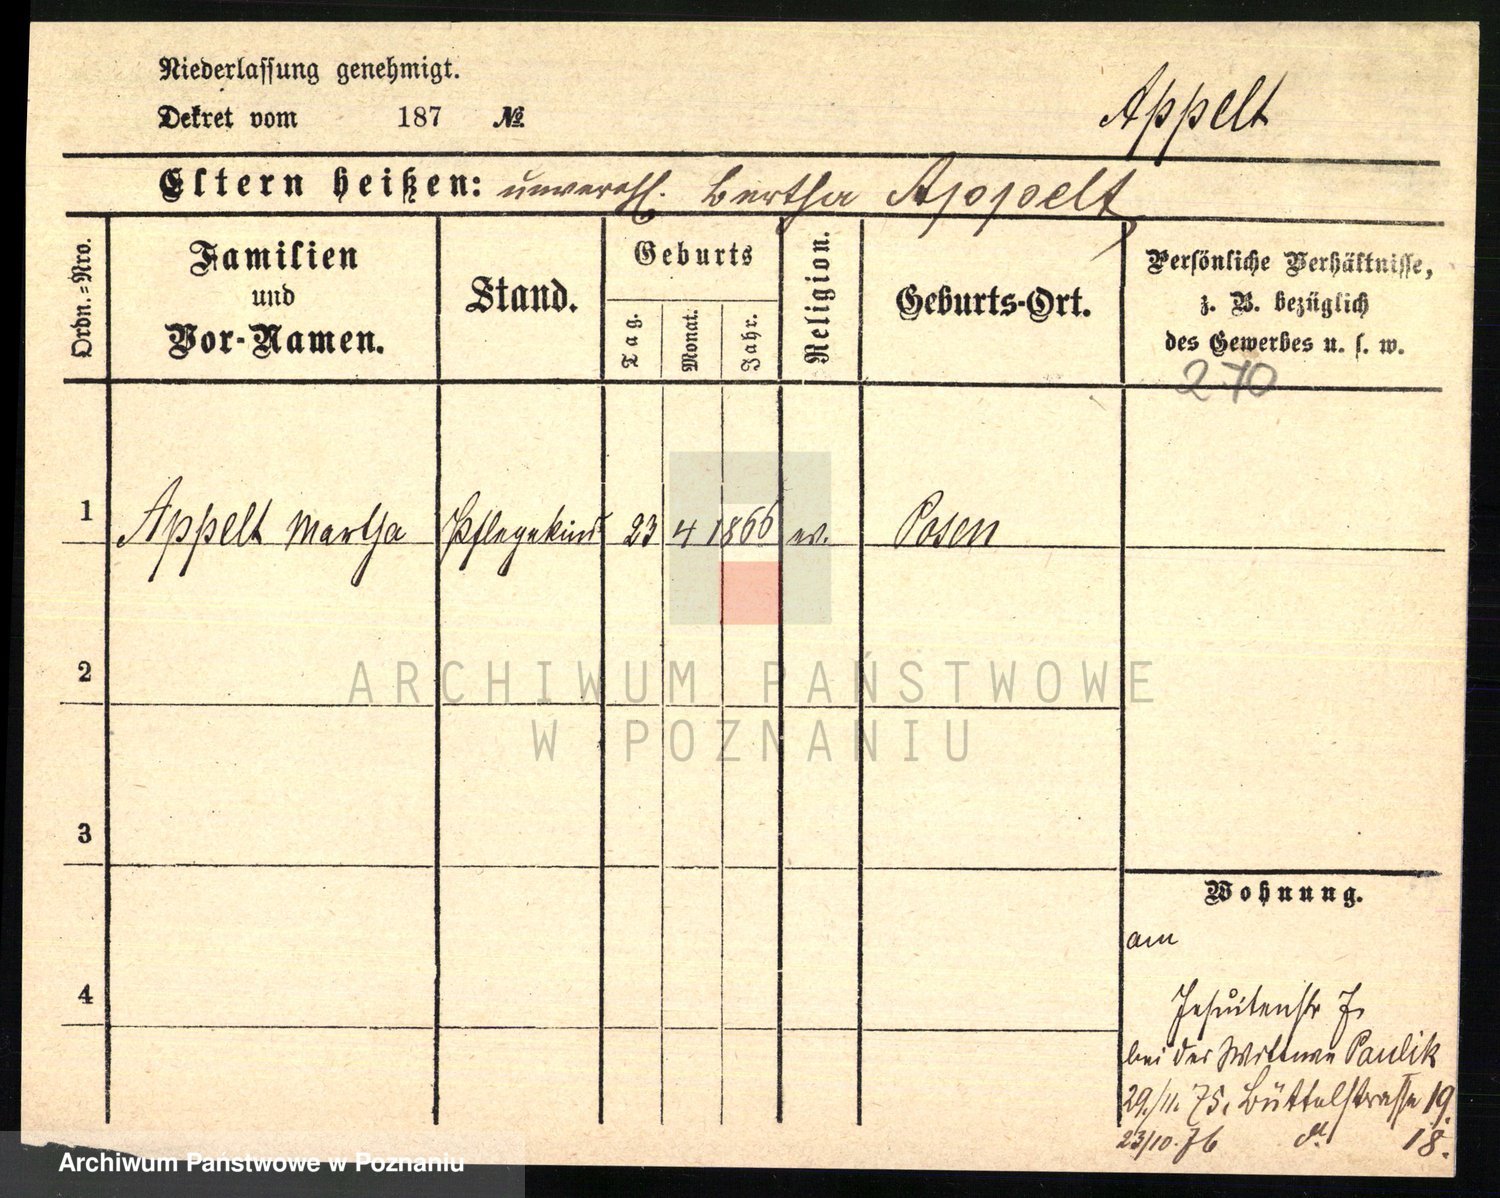 Niederlassung genehmigt.
Dekret vom 187 №
Appelt
Eltern heißen: unverehl. Bertha Appelt
Ordn.-Nro.
Familien
und
Vor-Namen.
Stand.
Geburts
Tag.
Monat.
Jahr.
Religion.
Geburts-Ort.
Persönliche Verhältnisse,
z. B. bezüglich
des Gewerbes u. s. w.
270
1 Appelt Martha Pflegekind 23 4 1866 ev. Posen
2
ARCHIWUM PAŃSTWOWE
W POZNANIU
3
Wohnung.
am
4
Jesuitenstr
bei der Wittwe Paulik
29./11. 75. Büttelstrasse 19.
23/10. 76 dt 18.
Archiwum Państwowe w Poznaniu